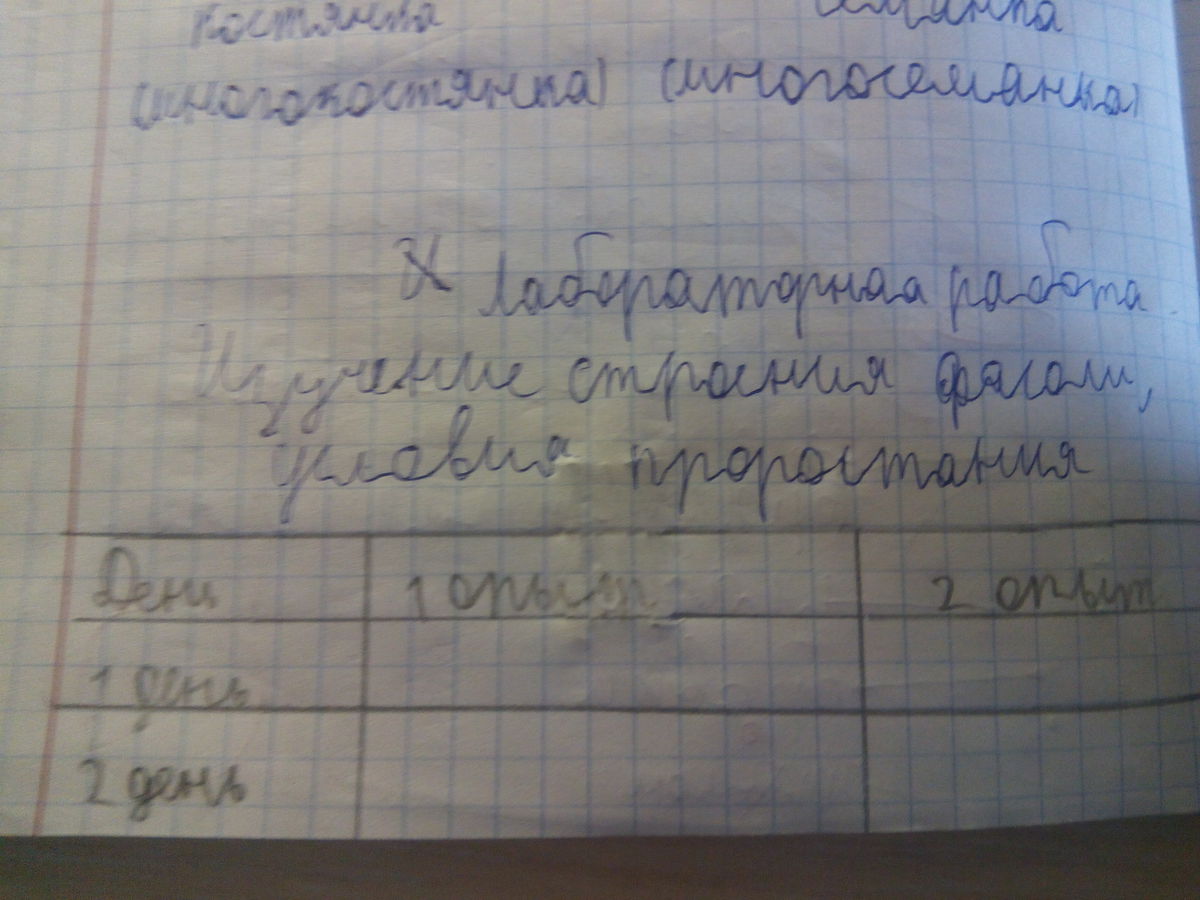 костянка семянка
(многокостянка) (многосемянка)
Лабораторная работа
Изучение строения фасоли,
условия проростания
День 1 опыт 2 опыт
1 день
2 день